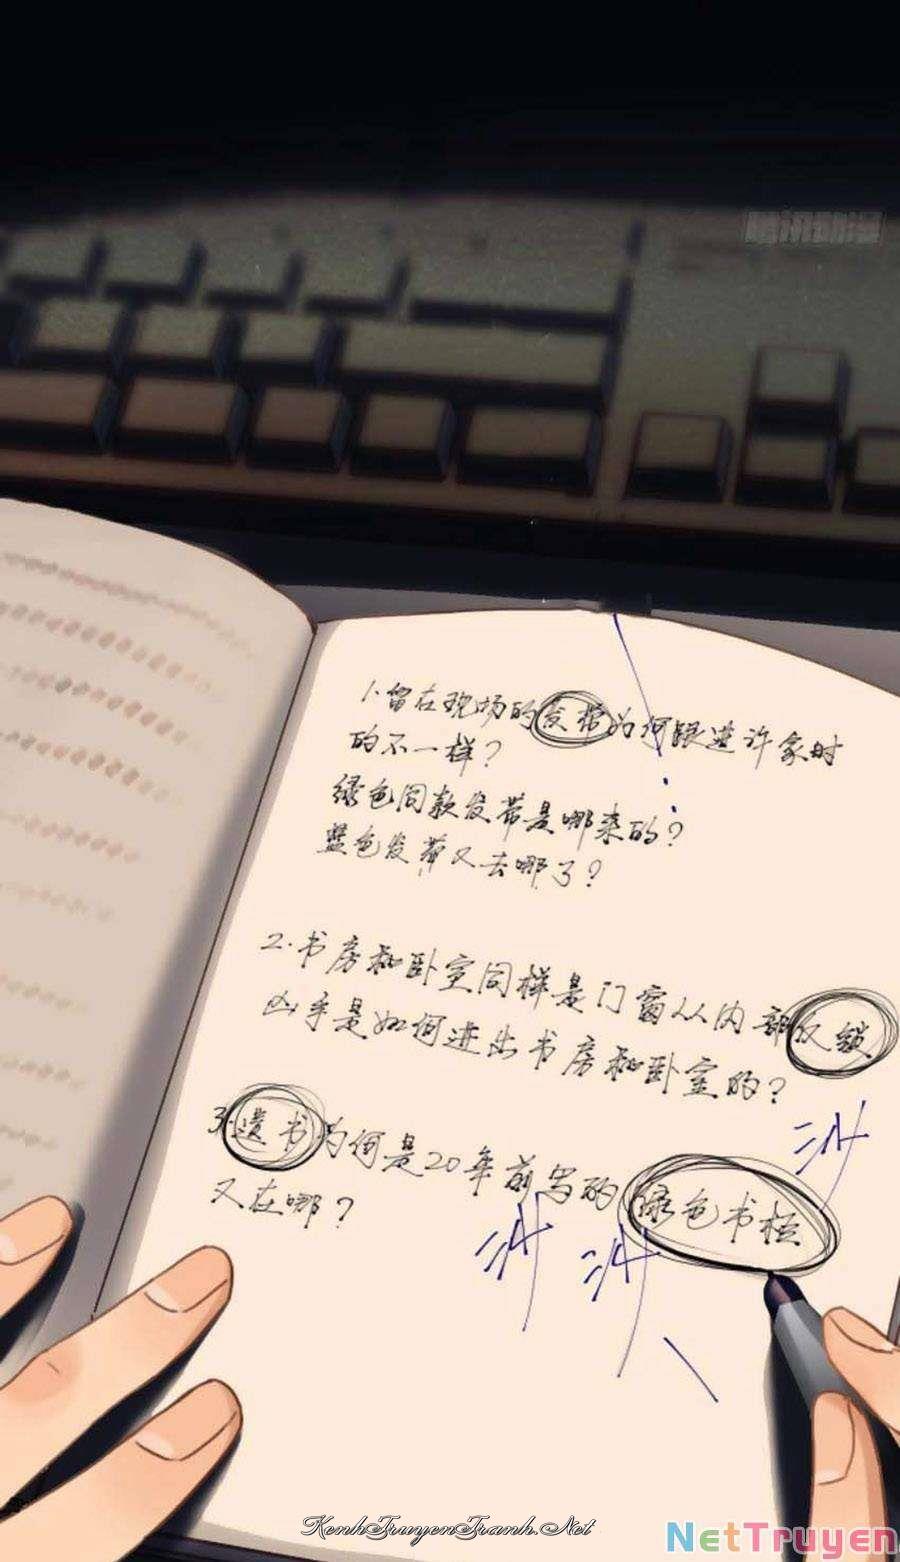 1.留在现场的发带为何跟进许家时
的不一样？
绿色同款发带是哪来的？
蓝色发带又去哪了？
2.书房和卧室同样是门窗从内部反锁
凶手是如何进出书房和卧室的？
3.遗书为何是20年前写的 绿色书柜
又在哪？
沙
沙
沙
KenhTruyenTranh.Net
NetTruyen